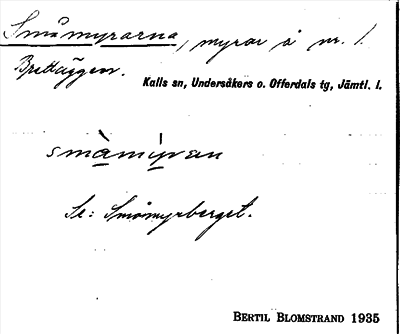 Småmyrarna, myrar å nr. 1.
Brettäggen.
Kalls sn, Undersåkers o. Offerdals tg, Jämtl. l.
smàmíran
Se: Småmyrberget.
BERTIL BLOMSTRAND 1935